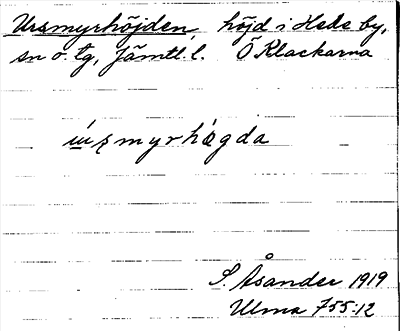 Ursmyrhöjden, höjd i Hede by,
sn o. tg, Jämtl. l. Ö Klackarna
S. Åsander 1919
Ulma 755:12